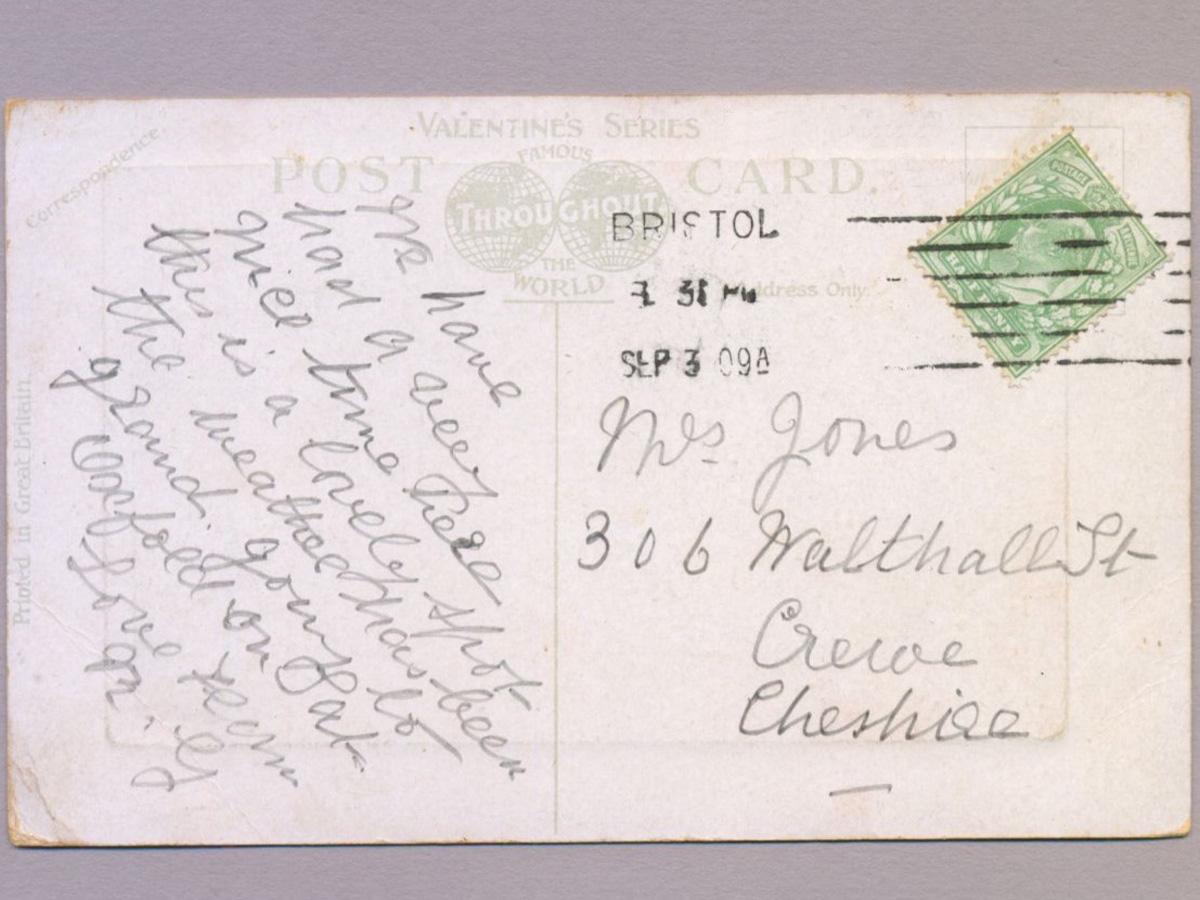 Correspondence
VALENTINE'S SERIES
POST CARD.
FAMOUS
THROUGHOUT
THE
WORLD
Address Only.
Printed in Great Britain.
We have
had a veery
nice time here
this is a lovely spot
the weather has been
grand. going to
on Sat.
Love
BRISTOL
SEP 3 09A
POSTAGE
Mrs Jones
306 Walthall St
Crewe
Cheshire